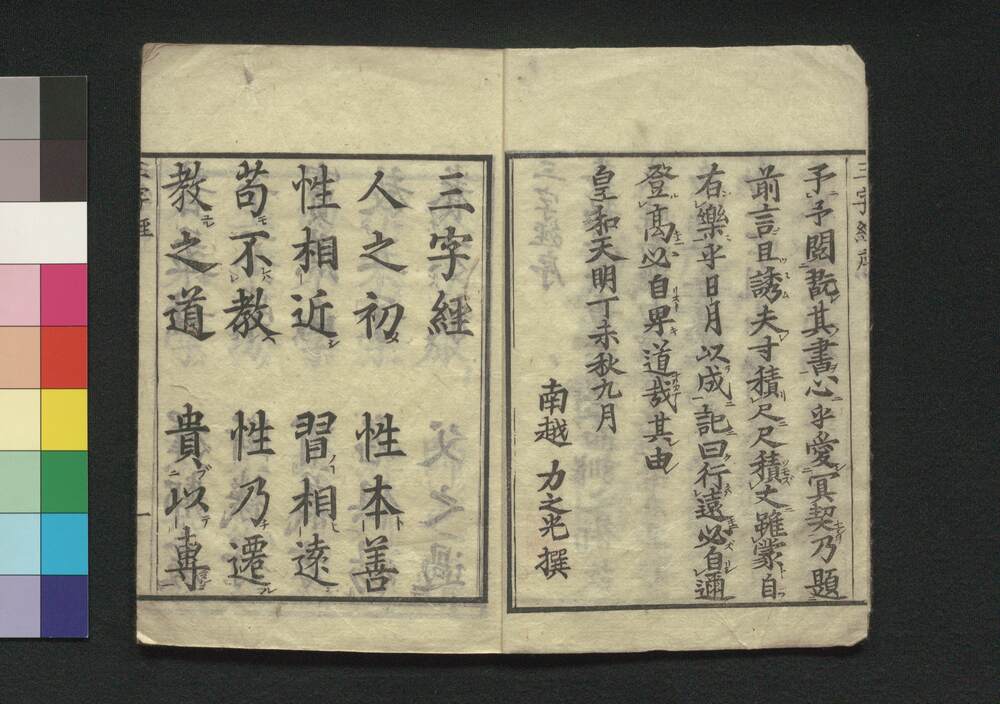 予予閱
其書心乎愛冥契乃題
前言且誘夫寸積尺尺積丈雖蒙自
右樂乎日月以成記曰行遠必自邇
登高必自卑道哉其由
皇和天明丁未秋九月
南越 力之光 撰
三字經
人之初 性本善
性相近 習相遠
苟不教 性乃遷
教之道 貴以專
一